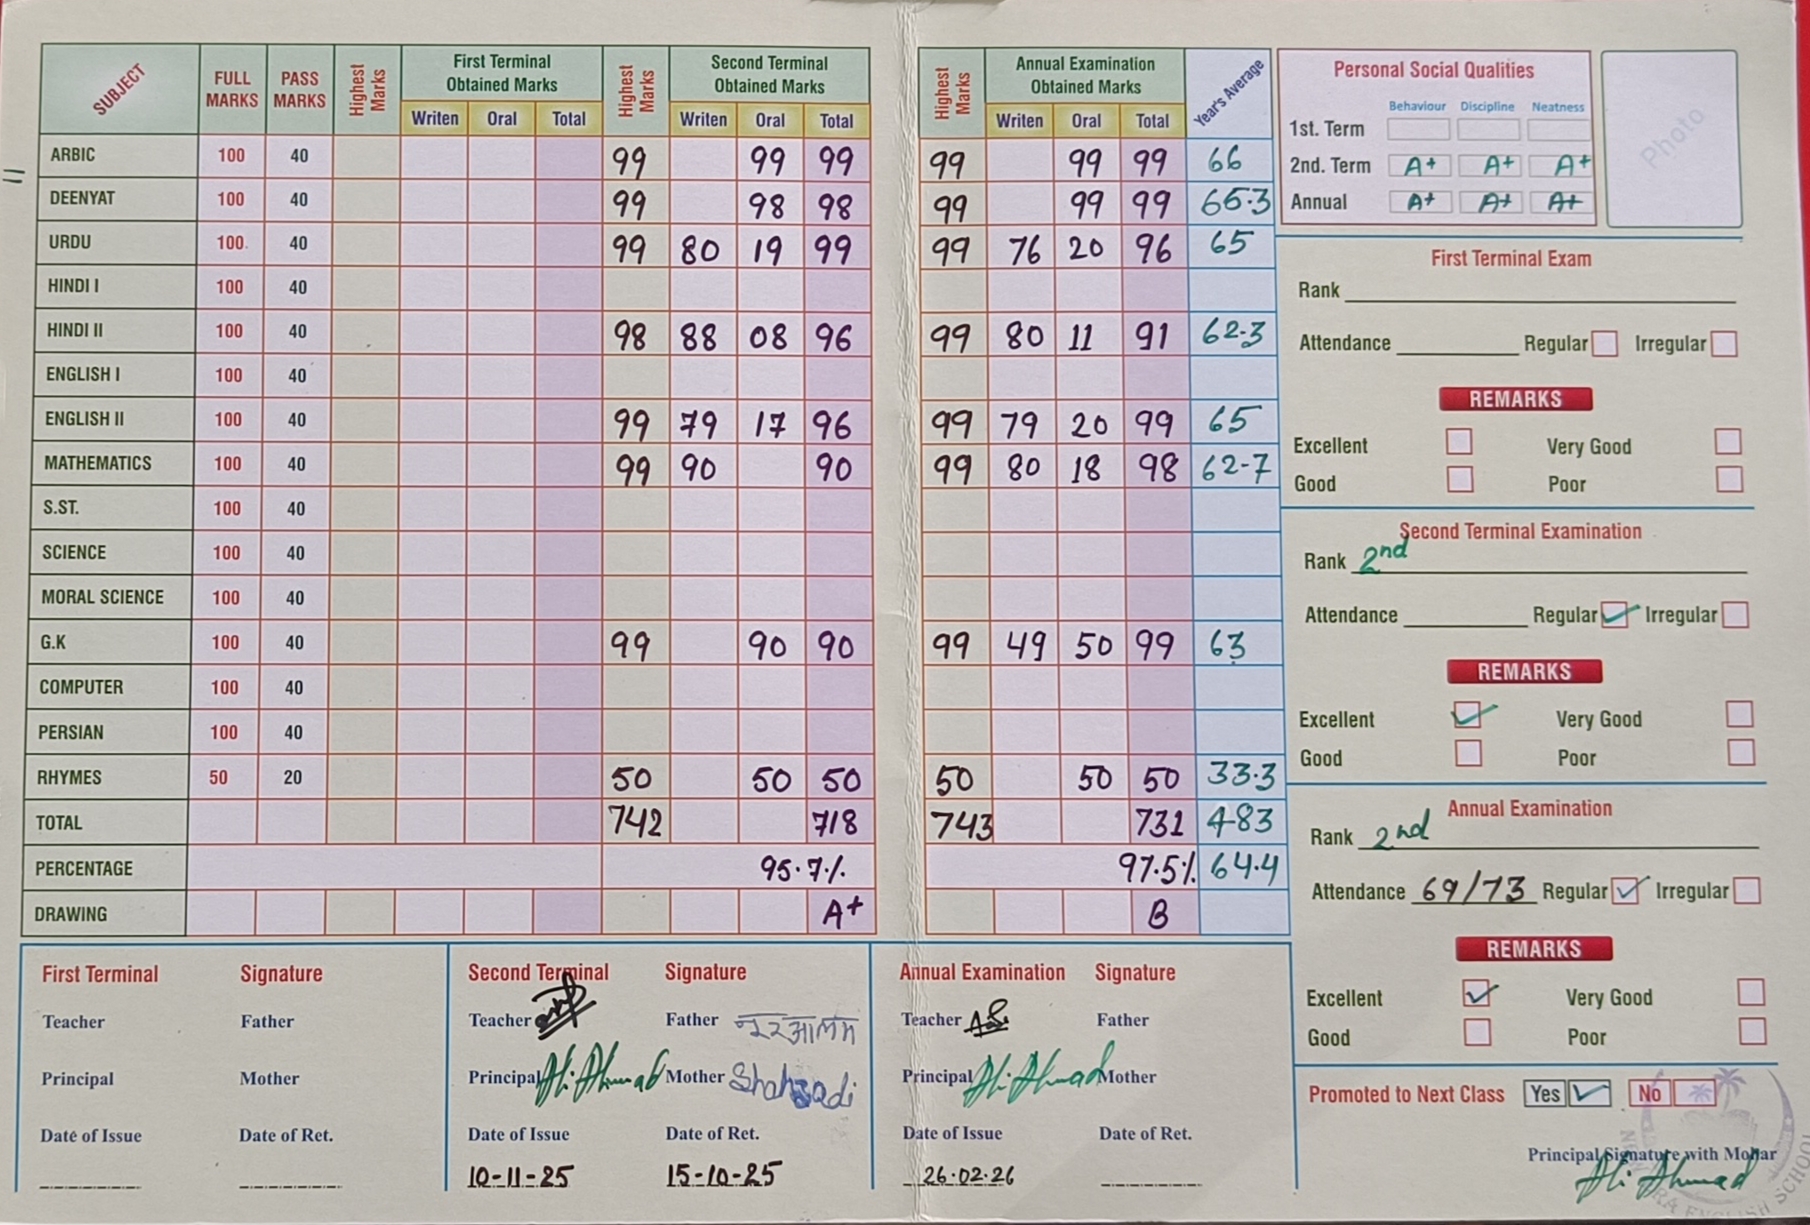 SUBJECT FULL MARKS PASS MARKS Highest Marks First Terminal Obtained Marks Highest Marks Second Terminal Obtained Marks Highest Marks Annual Examination Obtained Marks Year's Average
Writen Oral Total Writen Oral Total Writen Oral Total
ARBIC 100 40 99 99 99 99 99 99 66
DEENYAT 100 40 99 98 98 99 99 99 65.3
URDU 100 40 99 80 19 99 99 76 20 96 65
HINDI I 100 40
HINDI II 100 40 98 88 08 96 99 80 11 91 62.3
ENGLISH I 100 40
ENGLISH II 100 40 99 79 17 96 99 79 20 99 65
MATHEMATICS 100 40 99 90 90 99 80 18 98 62-7
S.ST. 100 40
SCIENCE 100 40
MORAL SCIENCE 100 40
G.K 100 40 99 90 90 99 49 50 99 63
COMPUTER 100 40
PERSIAN 100 40
RHYMES 50 20 50 50 50 50 50 50 33.3
TOTAL 742 718 743 731 483
PERCENTAGE 95.7% 97.5% 64.4
DRAWING A+ B
First Terminal Signature
Teacher Father
Principal Mother
Date of Issue Date of Ret.
Second Terminal Signature
Teacher Father नूरआलम
Principal Ali Ahmad Mother Shahzadi
Date of Issue Date of Ret.
10-11-25 15-10-25
Annual Examination Signature
Teacher Father
Principal Ali Ahmad Mother
Date of Issue Date of Ret.
26.02.26
Personal Social Qualities
Behaviour Discipline Neatness
1st. Term
2nd. Term A+ A+ A+
Annual A+ A+ A+
Photo
First Terminal Exam
Rank
Attendance Regular Irregular
REMARKS
Excellent Very Good
Good Poor
Second Terminal Examination
Rank 2nd
Attendance Regular Irregular
REMARKS
Excellent Very Good
Good Poor
Annual Examination
Rank 2nd
Attendance 69/73 Regular Irregular
REMARKS
Excellent Very Good
Good Poor
Promoted to Next Class Yes No
Principal Signature with Mohar
Ali Ahmad
ENGLISH SCHOOL